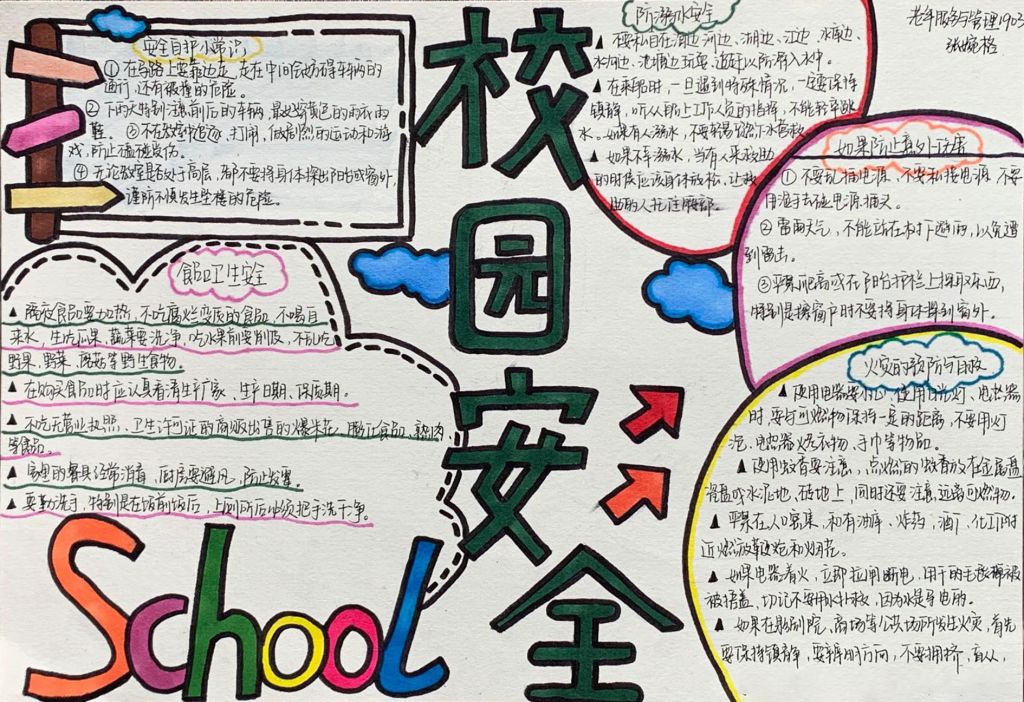 校园安全
老年服务与管理1903
安全自护小常识
① 在马路上要靠边走,走在中间会妨碍车辆的
通行,还有被撞的危险。
② 下雨天特别注意前后的车辆,最好穿黄色的雨衣雨
鞋。③ 不在教室中追逐,打闹,做剧烈的运动和游
戏,防止磕碰受伤。
④ 无论教室是否处于高层,都不要将身体探出阳台或窗外,
谨防不慎发生坠楼的危险。
防溺水安全
▲ 不要私自在海边、河边、湖边、江边、水库边、
水沟边、池塘边玩耍、追赶以防滑入水中。
▲ 在乘船时,一旦遇到特殊情况,一定要保持
镇静,听从船上工作人员的指挥,不能轻率跳
水。如果有人溺水,不要贸然下水营救。
▲ 如果不幸溺水,当有人来救助
的时候应该身体放松,让救
助的人托住腰部。
如果防止意外伤害
① 不要乱插电源、不要私接电源,不要
用湿手去碰电源、插头。
② 雷雨天气,不能站在树下避雨,以免遭
到雷击。
③ 平常爬高或在阳台护栏上探取东西,
特别是擦窗户时不要将身体探到窗外。
食品卫生安全
▲ 隔夜食品要加热,不吃腐烂变质的食品,不喝自
来水,生吃瓜果、蔬菜要洗净,吃水果前要削皮,不乱吃
野果、野菜、蘑菇等野生食物。
▲ 在购买食品时应认真看清生产厂家、生产日期、保质期。
▲ 不吃无营业执照、卫生许可证的商贩出售的爆米花、膨化食品、熟肉
等食品。
▲ 家里的餐具经常消毒,厨房要通风,防止发霉。
▲ 要勤洗手,特别是在饭前饭后,上厕所后必须把手洗干净。
火灾的预防与自救
▲ 使用电器要小心,使用日光灯、电热器
时,要与可燃物保持一定的距离,不要用灯
泡、电热器烘衣物、手巾等物品。
▲ 使用蚊香要注意,点燃的蚊香放在金属盘
水泥地、砖地上,同时还要注意远离可燃物。
▲ 平常在人口密集,和有油库、炸药、酒厂、化工厂附
近燃放鞭炮和烟花。
▲ 如果电器着火,立即拉闸断电,用干的毛毯棉被
被捂盖,切记不要用水扑救,因为水是导电的。
▲ 如果在影剧院、商场等公共场所发生火灾,首先
要保持镇静,要辨明方向,不要拥挤,盲从,
School